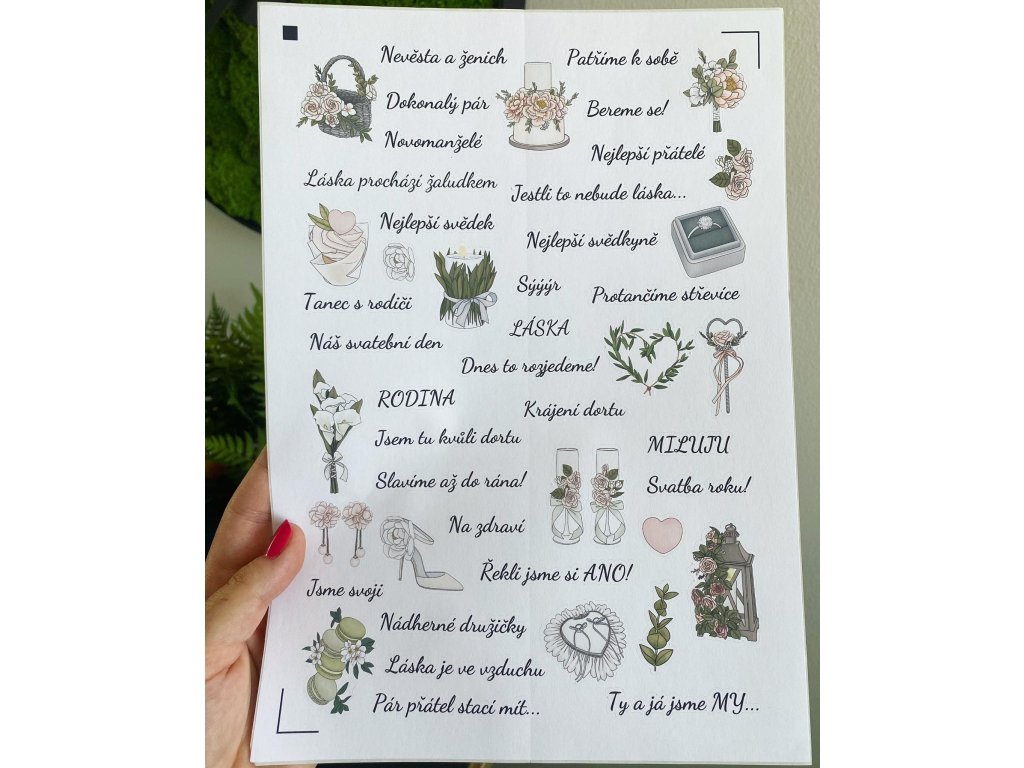 Nevěsta a ženich
Patříme k sobě
Dokonalý pár
Bereme se!
Novomanželé
Nejlepší přátelé
Láska prochází žaludkem
Jestli to nebude láska...
Nejlepší svědek
Nejlepší svědkyně
Sýýýr
Tanec s rodiči
Protančíme střevíce
LÁSKA
Náš svatební den
Dnes to rozjedeme!
RODINA
Krájení dortu
Jsem tu kvůli dortu
MILUJU
Slavíme až do rána!
Svatba roku!
Na zdraví
Řekli jsme si ANO!
Jsme svoji
Nádherné družičky
Láska je ve vzduchu
Pár přátel stací mít...
Ty a já jsme MY...